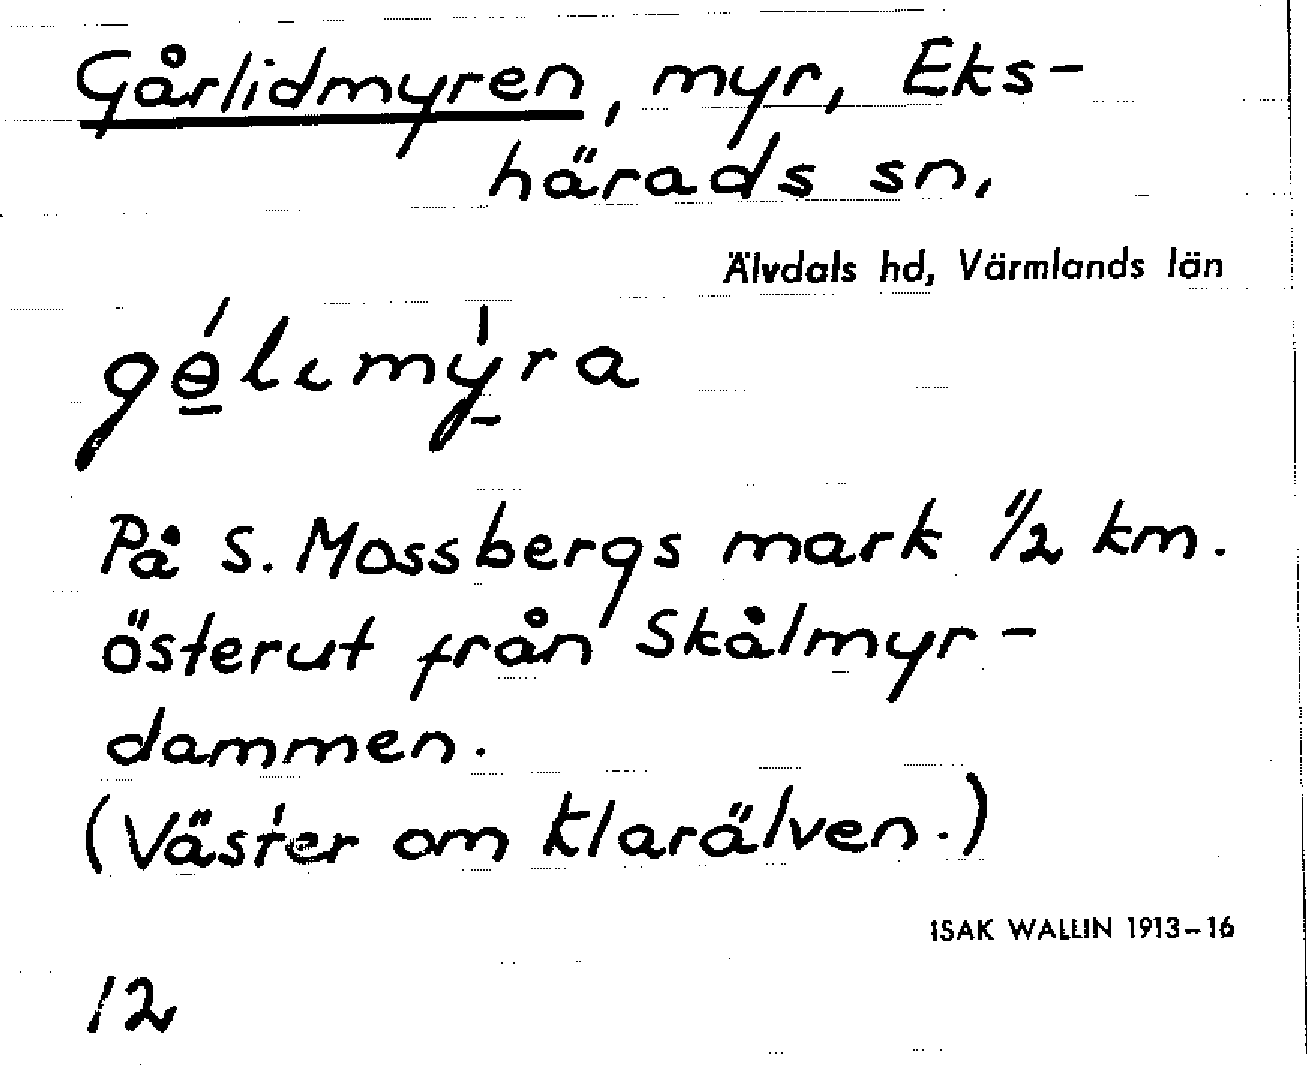 Gårlidmyren, myr, Eks-
härads sn,
Älvdals hd, Värmlands län
gɵ̲́lɩmy̲̍ra
På S. Mossbergs mark 1/2 km.
österut från Skålmyr-
dammen.
(Väster om Klarälven.)
ISAK WALLIN 1913–16
12